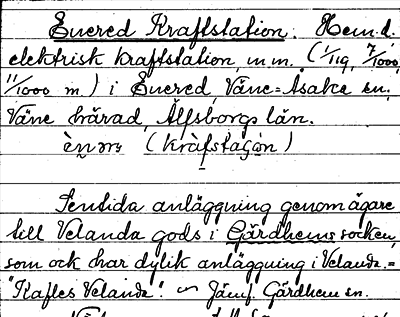 Enered Kraftstation. Hemd.
elektrisk kraftstation m.m. (1/119, 7/1000,
11/1000 m.) i Enered Väne-Åsaka sn.
Väne härad, Älfsborgs län.
(kràfstaʃón)
Sentida anläggning genom ägare
till Velanda gods i Gärdhems socken,
som ock har dylik anläggning i Velanda =
"Kafles Velanda". ~ Jämf. Gärdhem sn.